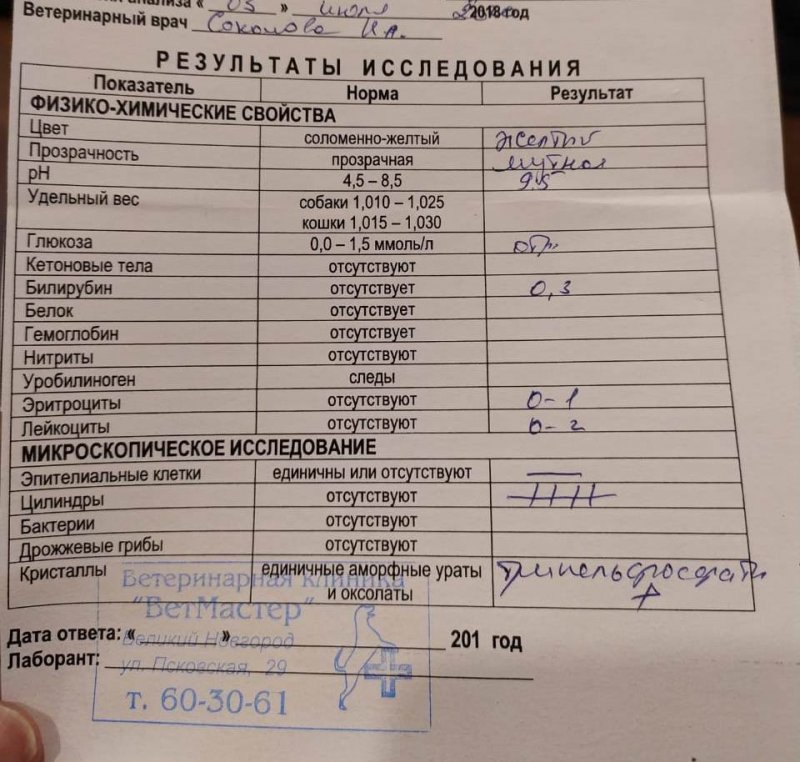 анализа « 05 » июля 2018 год
Ветеринарный врач Соколова И.А.
РЕЗУЛЬТАТЫ ИССЛЕДОВАНИЯ
Показатель Норма Результат
ФИЗИКО-ХИМИЧЕСКИЕ СВОЙСТВА
Цвет соломенно-желтый желтый
Прозрачность прозрачная мутная
рН 4,5 – 8,5 9.5
Удельный вес собаки 1,010 – 1,025
кошки 1,015 – 1,030
Глюкоза 0,0 – 1,5 ммоль/л отр.
Кетоновые тела отсутствуют
Билирубин отсутствует 0,3
Белок отсутствует
Гемоглобин отсутствует
Нитриты отсутствуют
Уробилиноген следы
Эритроциты отсутствуют 0-1
Лейкоциты отсутствуют 0-2
МИКРОСКОПИЧЕСКОЕ ИССЛЕДОВАНИЕ
Эпителиальные клетки единичны или отсутствуют —
Цилиндры отсутствуют
Бактерии отсутствуют
Дрожжевые грибы отсутствуют
Кристаллы единичные аморфные ураты трипельфосфаты
и оксолаты +
Ветеринарная клиника
"ВетМастер"
Великий Новгород
ул. Псковская, 29
т. 60-30-61
Дата ответа: « » 201 год
Лаборант: